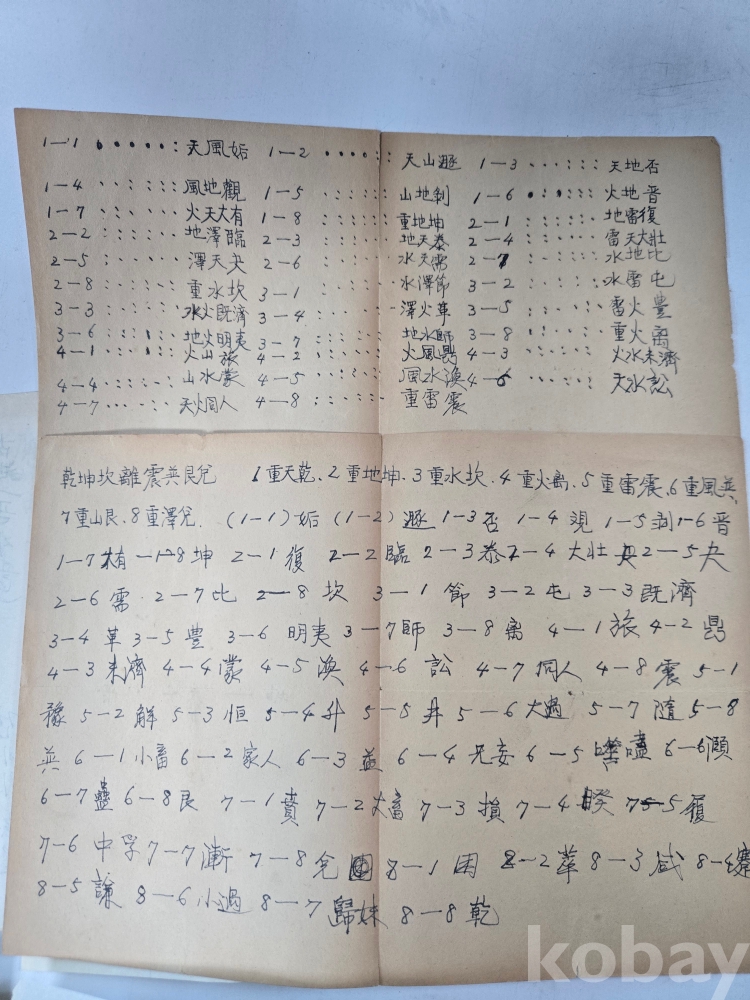 1-1 天風姤 1-2 天山遯 1-3 天地否
1-4 風地觀 1-5 山地剝 1-6 火地晉
1-7 火天大有 1-8 重地坤 2-1 地雷復
2-2 地澤臨 2-3 地天泰 2-4 雷天大壯
2-5 澤天夬 2-6 水天需 2-7 水地比
2-8 重水坎 3-1 水澤節 3-2 水雷屯
3-3 水火既濟 3-4 澤火革 3-5 雷火豊
3-6 地火明夷 3-7 地水師 3-8 重火离
4-1 火山旅 4-2 火風鼎 4-3 火水未濟
4-4 山水蒙 4-5 風水渙 4-6 天水訟
4-7 天火同人 4-8 重雷震
乾坤坎離震巽艮兌 1重天乾、2重地坤、3重水坎、4重火离、5重雷震、6重風巽、
7重山艮、8重澤兌、(1-1)姤 (1-2)遯 1-3否 1-4 觀 1-5剝 1-6晉
1-7 大有 1-8 坤 2-1 復 2-2 臨 2-3 泰 2-4 大壯 2-5 夬
2-6 需 2-7 比 2-8 坎 3-1 節 3-2 屯 3-3 既濟
3-4 革 3-5 豊 3-6 明夷 3-7 師 3-8 离 4-1 旅 4-2 鼎
4-3 未濟 4-4 蒙 4-5 渙 4-6 訟 4-7 同人 4-8 震 5-1
豫 5-2 解 5-3 恒 5-4 升 5-5 井 5-6 大過 5-7 隨 5-8
巽 6-1 小畜 6-2 家人 6-3 益 6-4 无妄 6-5 噬嗑 6-6 頤
6-7 蠱 6-8 艮 7-1 賁 7-2 大畜 7-3 損 7-4 睽 7-5 履
7-6 中孚 7-7 漸 7-8 兌 8-1 困 8-2 萃 8-3 咸 8-4 蹇
8-5 謙 8-6 小過 8-7 歸妹 8-8 乾
kobay